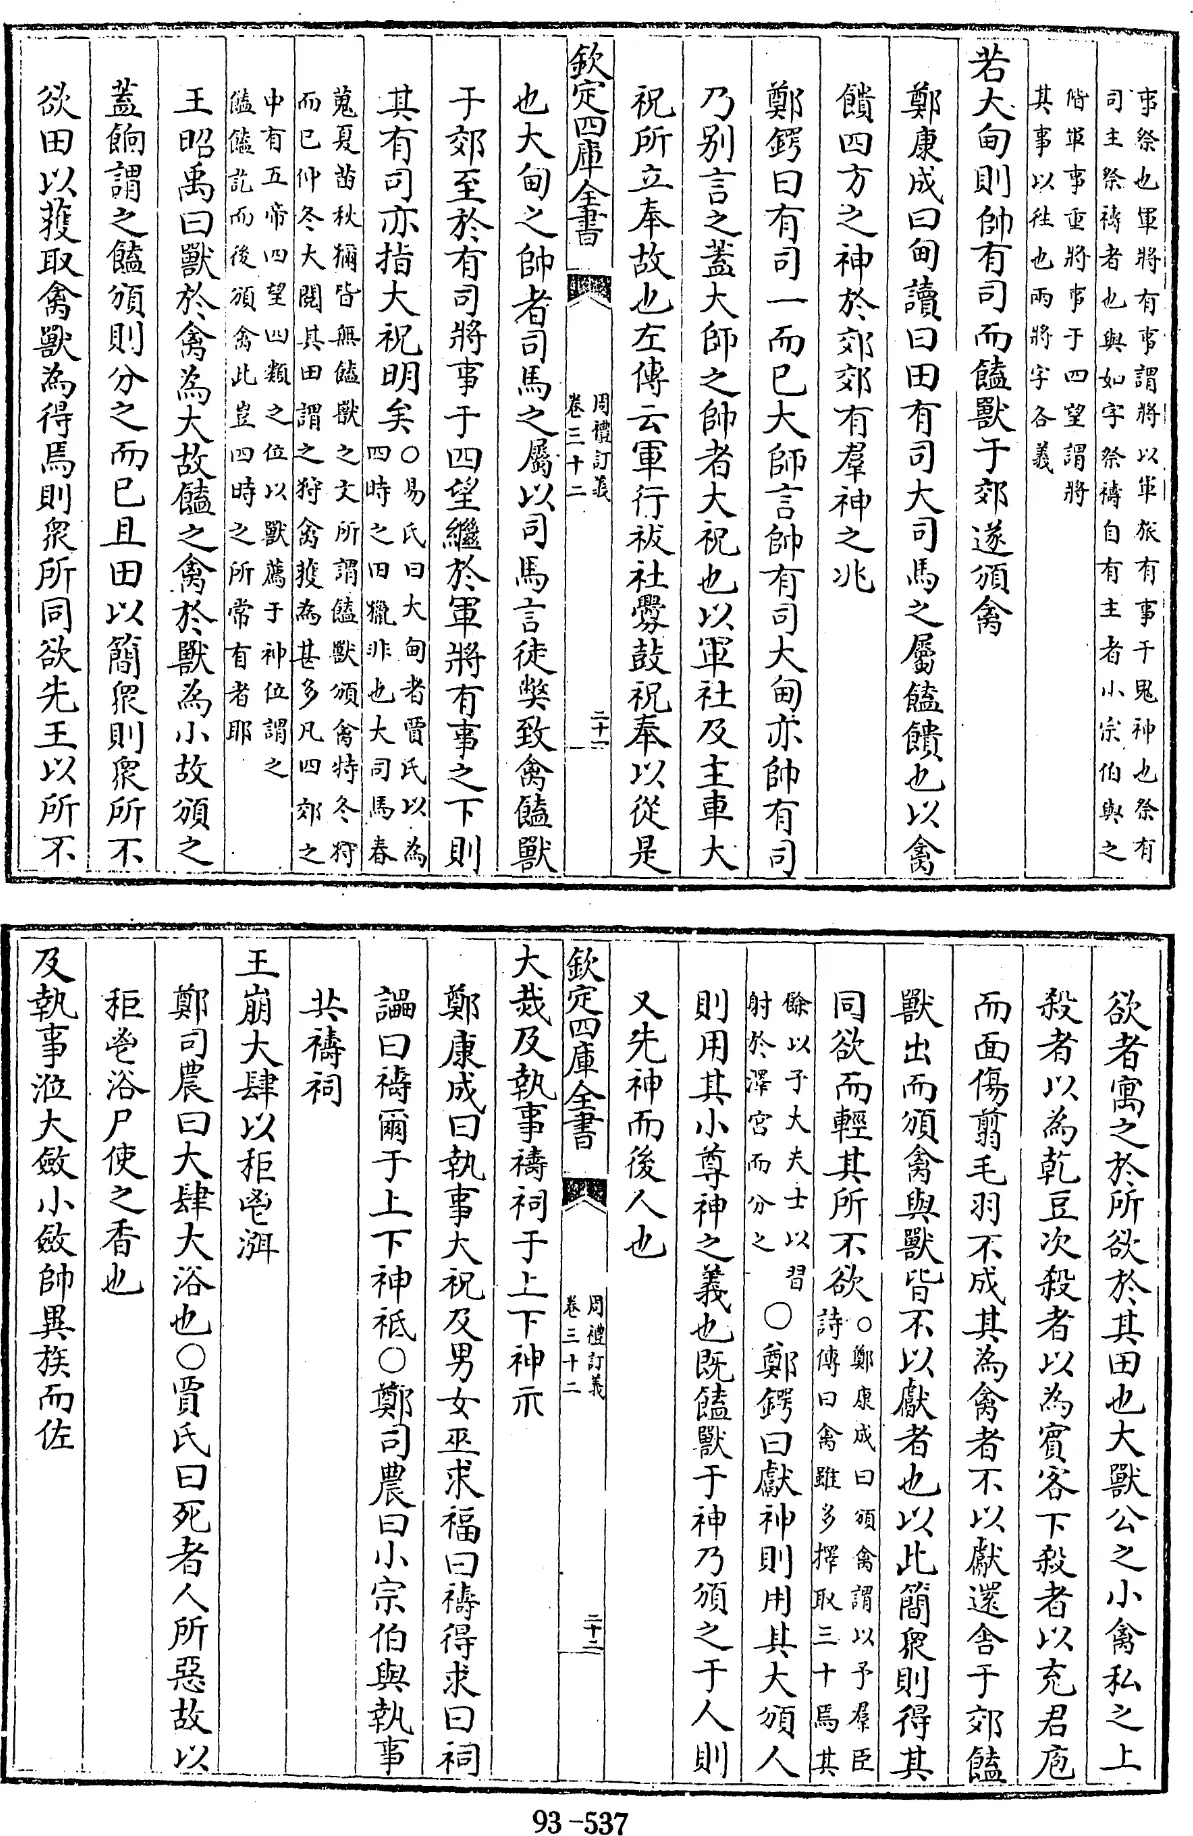 事祭也軍將有事謂將以軍旅有事于鬼神也祭有
司主祭禱者也與如字祭禱自有主者小宗伯與之
偕軍事重將事于四望謂將
其事以徃也兩將字各義
若大甸則帥有司而饁獸于郊遂頒禽
鄭康成曰甸讀曰田有司大司馬之屬饁饋也以禽
饋四方之神於郊郊有羣神之兆
鄭鍔曰有司一而已大師言帥有司大甸亦帥有司
乃别言之蓋大師之帥者大祝也以軍社及主車大
祝所立奉故也左傳云軍行祓社釁鼓祝奉以從是
欽定四庫全書
周禮訂義
卷三十二
二十一
也大甸之帥者司馬之屬以司馬言徒獘致禽饁獸
于郊至於有司將事于四望繼於軍將有事之下則
其有司亦指大祝明矣○易氏曰大甸者賈氏以為
四時之田獵非也大司馬春
蒐夏苗秋獮皆無饁獸之文所謂饁獸頒禽特冬狩
而已仲冬大閱其田謂之狩禽獲為甚多凡四郊之
中有五帝四望四類之位以獸薦于神位謂之
饁饁訖而後頒禽此豈四時之所常有者耶
王昭禹曰獸於禽為大故饁之禽於獸為小故頒之
蓋餉謂之饁頒則分之而已且田以簡衆則衆所不
欲田以獲取禽獸為得焉則衆所同欲先王以所不
欲者寓之於所欲於其田也大獸公之小禽私之上
殺者以為乾豆次殺者以為賓客下殺者以充君庖
而面傷翦毛羽不成其為禽者不以獻還舎于郊饁
獸出而頒禽與獸皆不以獻者也以此簡衆則得其
同欲而輕其所不欲○鄭康成曰頒禽謂以予羣臣
詩傳曰禽雖多擇取三十焉其
餘以予大夫士以習
射於澤宫而分之
○鄭鍔曰獻神則用其大頒人
則用其小尊神之義也既饁獸于神乃頒之于人則
又先神而後人也
欽定四庫全書
周禮訂義
卷三十二
二十二
大烖及執事禱祠于上下神示
鄭康成曰執事大祝及男女巫求福曰禱得求曰祠
讄曰禱爾于上下神祗○鄭司農曰小宗伯與執事
共禱祠
王崩大肆以秬鬯渳
鄭司農曰大肆大浴也○賈氏曰死者人所惡故以
秬鬯浴尸使之香也
及執事涖大斂小斂帥異族而佐
93-537